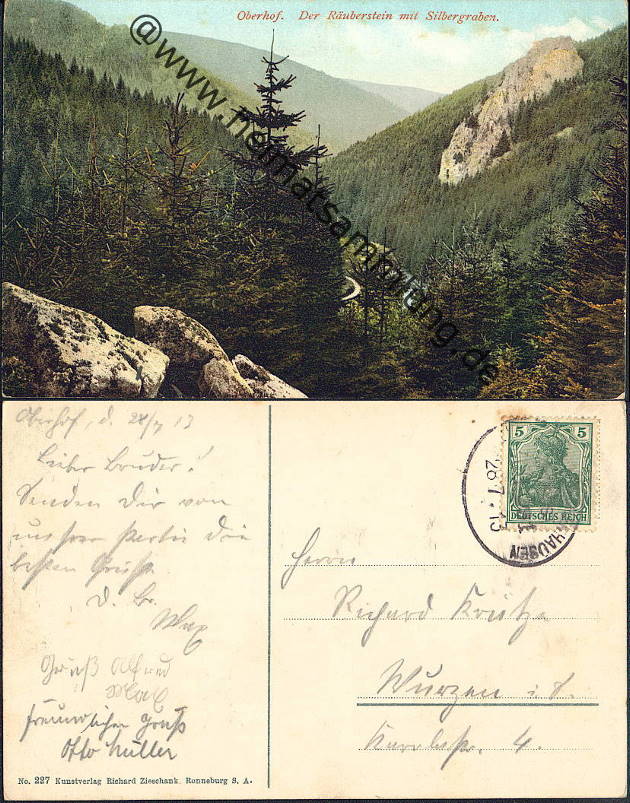 Oberhof. Der Räuberstein mit Silbergraben.
@www.heimatsammlung.de
Oberhof, d. 28/7 13
Lieber Bruder!
Senden Dir von
unsrer Partie die
besten Grüße
D. Br.
Max
Gruß Alfred
freundlichen Gruß
Otto Müller
No. 227 Kunstverlag Richard Zieschank, Ronneburg S. A.
5 5
DEUTSCHES REICH
28 7 13
HAUSEN
Herrn
Richard
Wurzen i. S.
4.